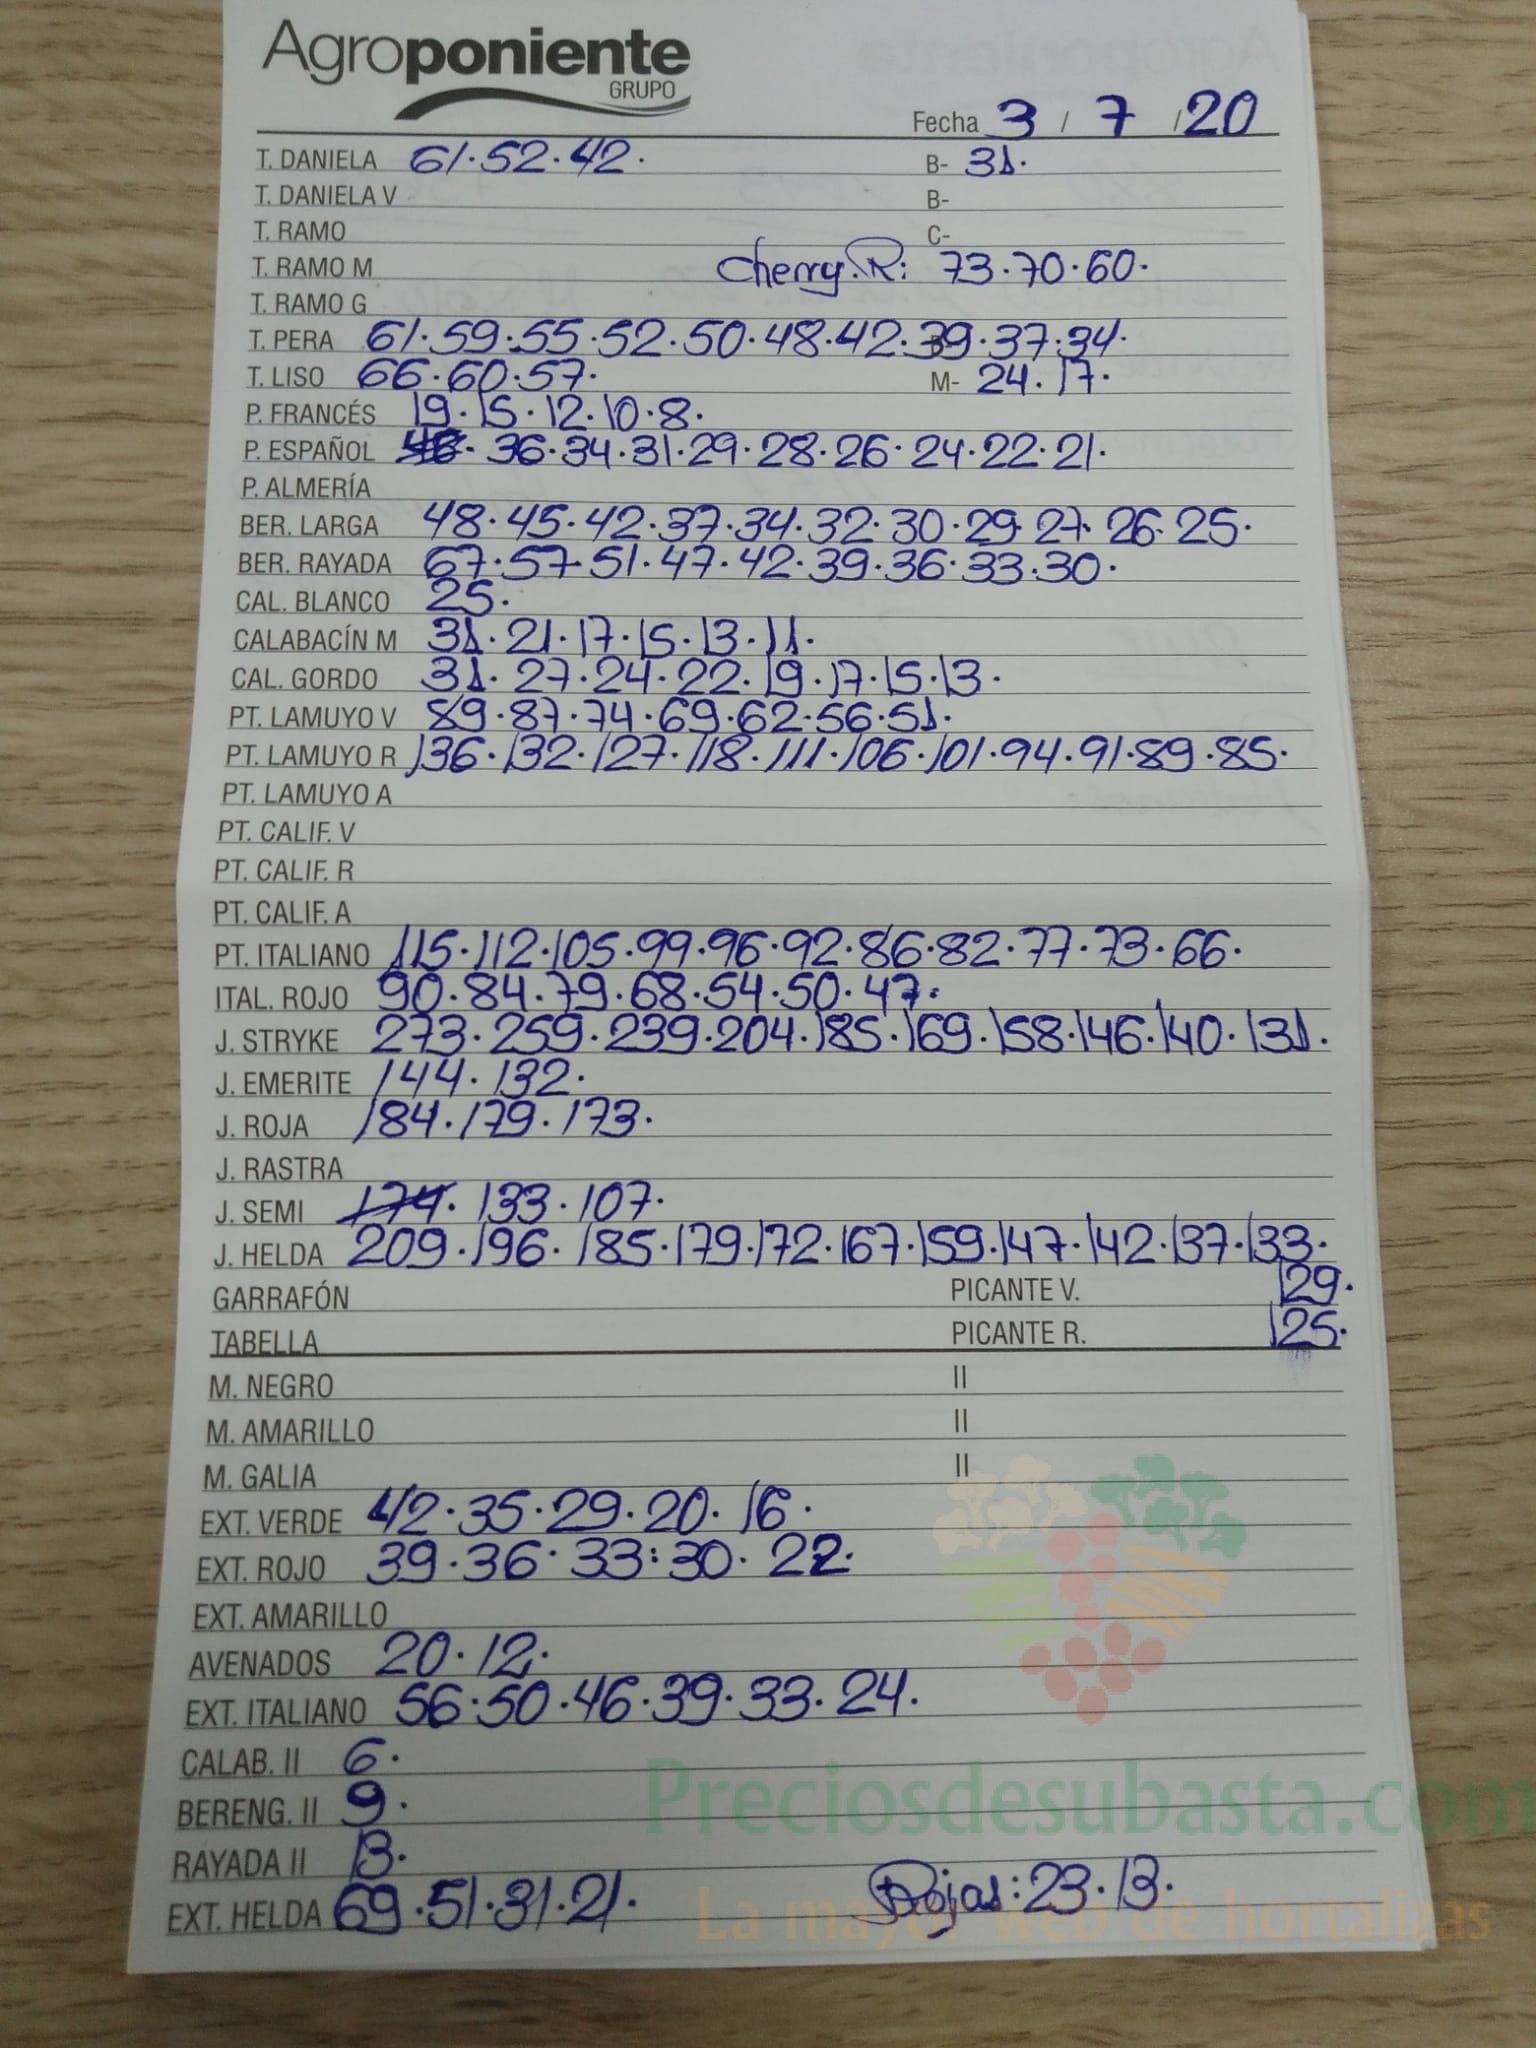 Agroponiente
GRUPO
Fecha 3 / 7 / 20
T. DANIELA 61·52·42· B- 31·
T. DANIELA V B-
T. RAMO C-
T. RAMO M Cherry.R: 73·70·60·
T. RAMO G
T. PERA 61·59·55·52·50·48·42·39·37·34·
T. LISO 66·60·57· M- 24·17·
P. FRANCÉS 19·15·12·10·8·
P. ESPAÑOL 36·34·31·29·28·26·24·22·21·
P. ALMERÍA
BER. LARGA 48·45·42·37·34·32·30·29·27·26·25·
BER. RAYADA 67·57·51·47·42·39·36·33·30·
CAL. BLANCO 25·
CALABACÍN M 31·21·17·15·13·11·
CAL. GORDO 31·27·24·22·19·17·15·13·
PT. LAMUYO V 89·87·74·69·62·56·51·
PT. LAMUYO R 136·132·127·118·111·106·101·94·91·89·85·
PT. LAMUYO A
PT. CALIF. V
PT. CALIF. R
PT. CALIF. A
PT. ITALIANO 115·112·105·99·96·92·86·82·77·73·66·
ITAL. ROJO 90·84·79·68·54·50·47·
J. STRYKE 273·259·239·204·185·169·158·146·140·131·
J. EMERITE 144·132·
J. ROJA 184·179·173·
J. RASTRA
J. SEMI 174· 133·107·
J. HELDA 209·196·185·179·172·167·159·147·142·137·133·
GARRAFÓN PICANTE V. 129·
TABELLA PICANTE R. 125·
M. NEGRO II
M. AMARILLO II
M. GALIA II
EXT. VERDE 42·35·29·20·16·
EXT. ROJO 39·36·33:30·22·
EXT. AMARILLO
AVENADOS 20·12·
EXT. ITALIANO 56·50·46·39·33·24·
CALAB. II 6·
Preciosdesubasta.com
BERENG. II 9·
RAYADA II 13·
EXT. HELDA 69·51·31·21· Rojas: 23·13·
La mayor web de hortalizas